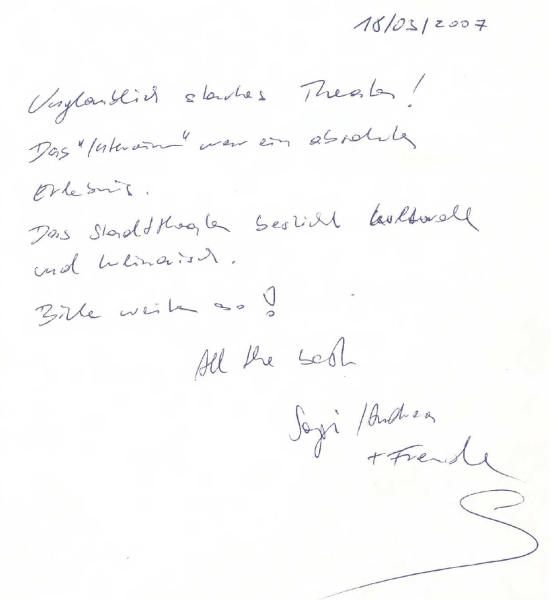 18/03/2007
Unglaublich starkes Theater!
Das "Interview" war ein absolutes
Erlebnis.
Das Stadttheater besticht kulturell
und kulinarisch.
Bitte weiter so!
All the best
/Andrea
+ Freunde